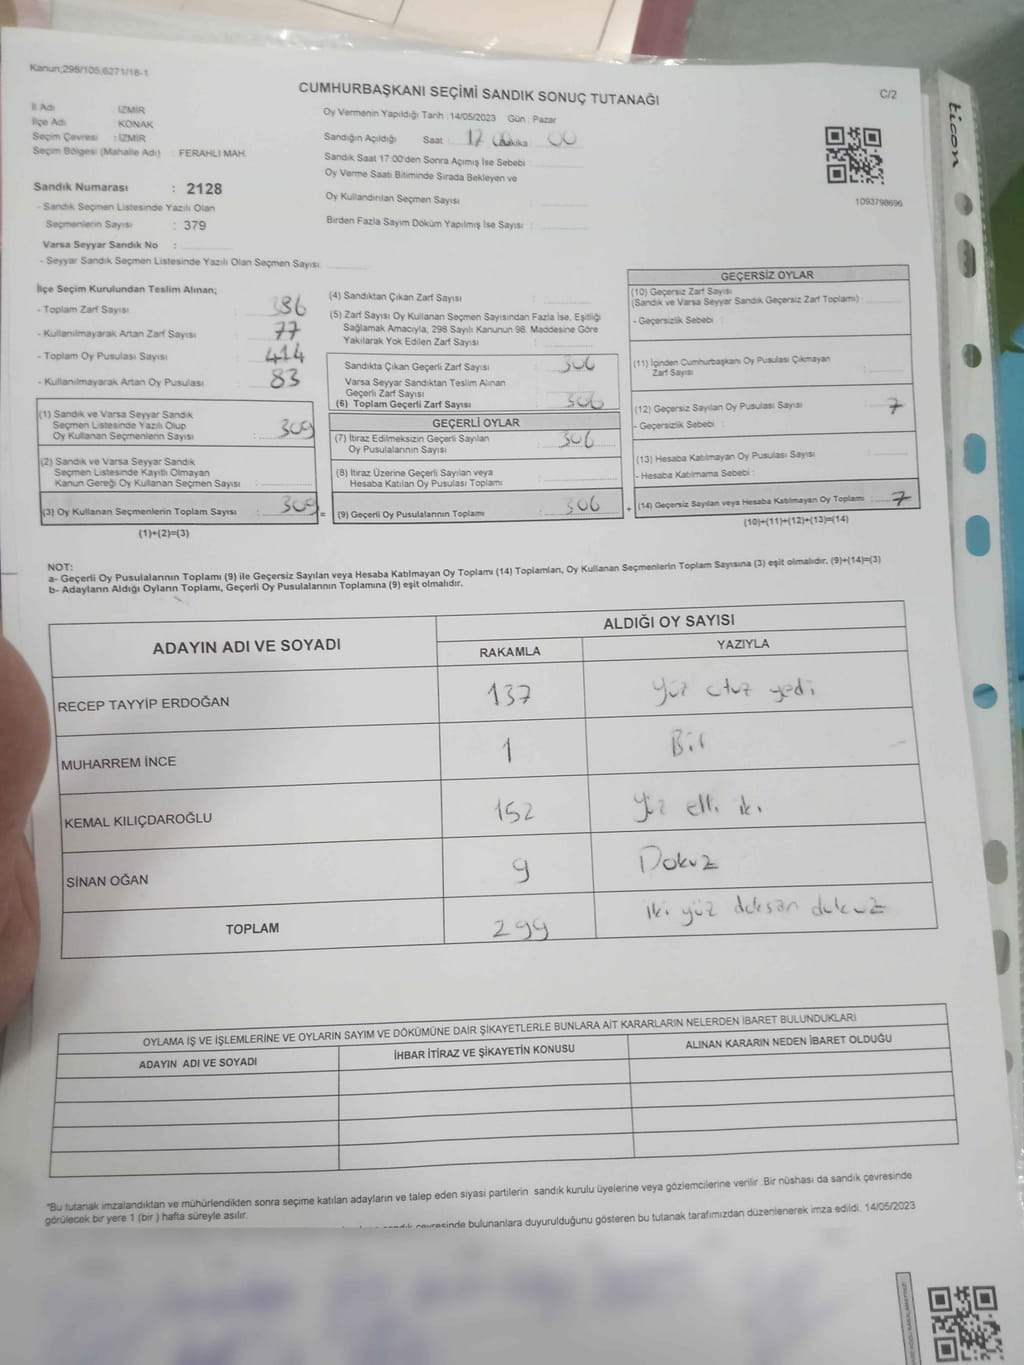 Kanun;298/105,6271/18-1
CUMHURBAŞKANI SEÇİMİ SANDIK SONUÇ TUTANAĞI
C/2
İl Adı : İZMİR
İlçe Adı : KONAK
Seçim Çevresi : İZMİR
Seçim Bölgesi (Mahalle Adı) : FERAHLI MAH.
Oy Vermenin Yapıldığı Tarih : 14/05/2023 Gün : Pazar
Sandığın Açıldığı Saat : 17 Dakika 00
Sandık Saat 17:00'den Sonra Açımış İse Sebebi :
Oy Verme Saati Bitiminde Sırada Bekleyen ve
Oy Kullandırılan Seçmen Sayısı :
Birden Fazla Sayım Döküm Yapılmış İse Sayısı :
1093798696
ticon
Sandık Numarası : 2128
- Sandık Seçmen Listesinde Yazılı Olan
Seçmenlerin Sayısı : 379
Varsa Seyyar Sandık No :
- Seyyar Sandık Seçmen Listesinde Yazılı Olan Seçmen Sayısı:
İlçe Seçim Kurulundan Teslim Alınan;
- Toplam Zarf Sayısı : 386
- Kullanılmayarak Artan Zarf Sayısı : 77
- Toplam Oy Pusulası Sayısı : 414
- Kullanılmayarak Artan Oy Pusulası : 83
(1) Sandık ve Varsa Seyyar Sandık
Seçmen Listesinde Yazılı Olup
Oy Kullanan Seçmenlerin Sayısı : 309
(2) Sandık ve Varsa Seyyar Sandık
Seçmen Listesinde Kayıtlı Olmayan
Kanun Gereği Oy Kullanan Seçmen Sayısı :
(3) Oy Kullanan Seçmenlerin Toplam Sayısı : 309 =
(1)+(2)=(3)
(4) Sandıktan Çıkan Zarf Sayısı :
(5) Zarf Sayısı Oy Kullanan Seçmen Sayısından Fazla İse, Eşitliği
Sağlamak Amacıyla; 298 Sayılı Kanunun 98. Maddesine Göre
Yakılarak Yok Edilen Zarf Sayısı :
Sandıkta Çıkan Geçerli Zarf Sayısı : 306
Varsa Seyyar Sandıktan Teslim Alınan
Geçerli Zarf Sayısı :
(6) Toplam Geçerli Zarf Sayısı : 306
GEÇERLİ OYLAR
(7) İtiraz Edilmeksizin Geçerli Sayılan
Oy Pusulalarının Sayısı : 306
(8) İtiraz Üzerine Geçerli Sayılan veya
Hesaba Katılan Oy Pusulası Toplamı :
(9) Geçerli Oy Pusulalarının Toplamı : 306 +
GEÇERSİZ OYLAR
(10) Geçersiz Zarf Sayısı
(Sandık ve Varsa Seyyar Sandık Geçersiz Zarf Toplamı) :
- Geçersizlik Sebebi :
(11) İçinden Cumhurbaşkanı Oy Pusulası Çıkmayan
Zarf Sayısı :
(12) Geçersiz Sayılan Oy Pusulası Sayısı : 7
- Geçersizlik Sebebi :
(13) Hesaba Katılmayan Oy Pusulası Sayısı :
- Hesaba Katılmama Sebebi :
(14) Geçersiz Sayılan veya Hesaba Katılmayan Oy Toplamı : 7
(10)+(11)+(12)+(13)=(14)
NOT:
a- Geçerli Oy Pusulalarının Toplamı (9) ile Geçersiz Sayılan veya Hesaba Katılmayan Oy Toplamı (14) Toplamları, Oy Kullanan Seçmenlerin Toplam Sayısına (3) eşit olmalıdır. (9)+(14)=(3)
b- Adayların Aldığı Oyların Toplamı, Geçerli Oy Pusulalarının Toplamına (9) eşit olmalıdır.
ADAYIN ADI VE SOYADI
ALDIĞI OY SAYISI
RAKAMLA YAZIYLA
RECEP TAYYİP ERDOĞAN 137 yüz otuz yedi
MUHARREM İNCE 1 Bir
KEMAL KILIÇDAROĞLU 152 yüz elli iki
SİNAN OĞAN 9 Dokuz
TOPLAM 299 iki yüz doksan dokuz
OYLAMA İŞ VE İŞLEMLERİNE VE OYLARIN SAYIM VE DÖKÜMÜNE DAİR ŞİKAYETLERLE BUNLARA AİT KARARLARIN NELERDEN İBARET BULUNDUKLARI
ADAYIN ADI VE SOYADI İHBAR İTİRAZ VE ŞİKAYETİN KONUSU ALINAN KARARIN NEDEN İBARET OLDUĞU
"Bu tutanak imzalandıktan ve mühürlendikten sonra seçime katılan adayların ve talep eden siyasi partilerin sandık kurulu üyelerine veya gözlemcilerine verilir. Bir nüshası da sandık çevresinde
görülecek bir yere 1 (bir ) hafta süreyle asılır.
sandık çevresinde bulunanlara duyurulduğunu gösteren bu tutanak tarafımızdan düzenlenerek imza edildi. 14/05/2023